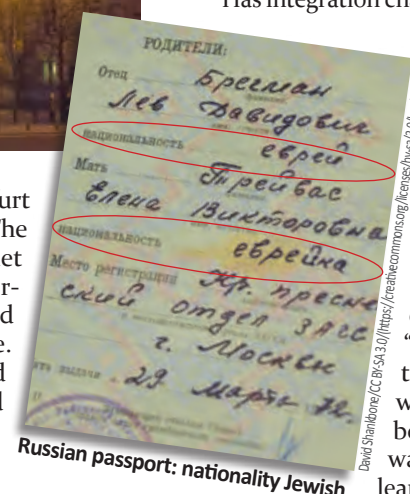 Has integration
РОДИТЕЛИ:
Отец Брегман
Лев Давидович
национальность еврей
Мать Трейвас
Елена Викторовна
национальность еврейка
Место регистрации Кр. Пресне
ский отдел ЗАГС
г. Москвы
выдачи 29 марта 72г.
Russian passport: nationality Jewish
David Shankbone/CC BY-SA 3.0/(https://creativecommons.org/licenses/by-sa/3.0)